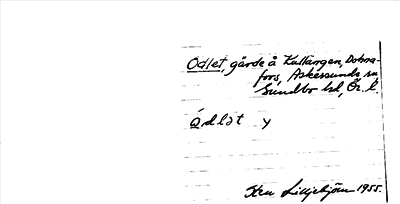 Odlet, gärde å Kallängen, Dohna-
fors, Askersunds sn
Sundbo hd, Ör. l.
ódlət y
Sten Liljebjörn 1955.